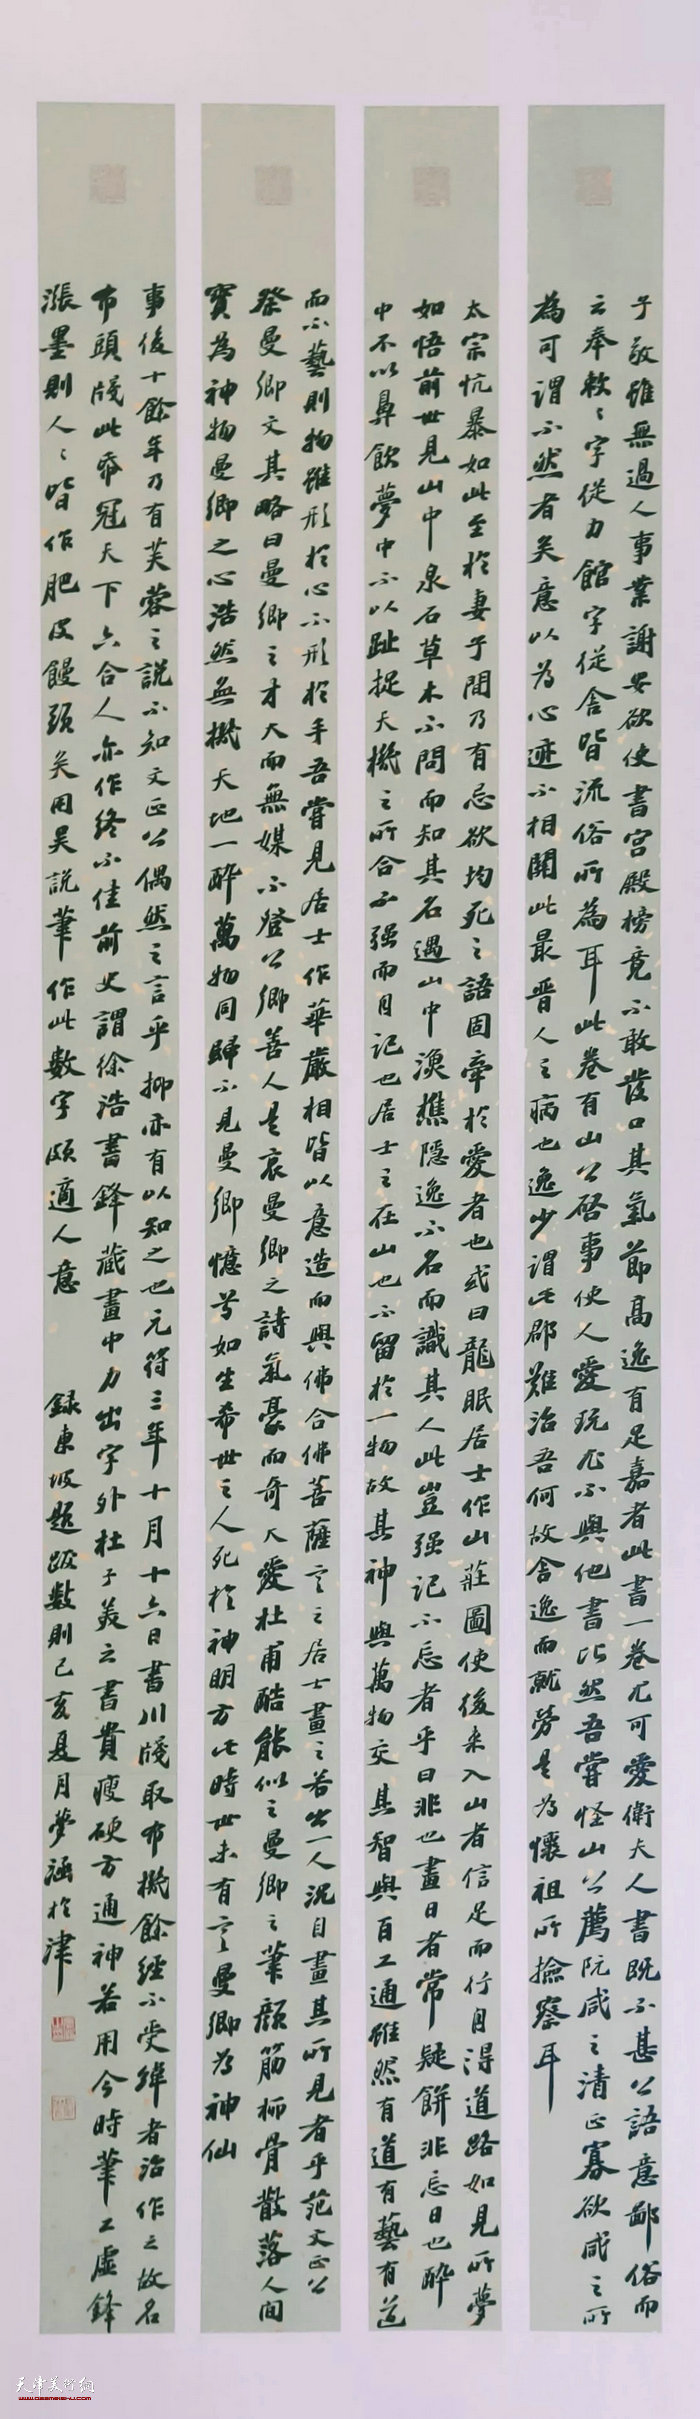 子敬雖無過人事業謝安欲使書宮殿榜竟不敢發口其氣節高逸有足嘉者此書一卷尤可愛衛夫人書既不甚公語意鄙俗而
云奉敕敕字從力館字從舍皆流俗所為耳此卷有山公啓事使人愛玩尤不與他書比然吾嘗怪山公薦阮咸之清正寡欲咸之所
為可謂不然者矣意以為心迹不相關此最晉人之病也逸少謂此郡難治吾何故舍逸而就勞是為懷祖所撿察耳
太宗忼暴如此至於妻子間乃有忌欲均死之語固牽於愛者也或曰龍眠居士作山莊圖使後來入山者信足而行自得道路如見所夢
如悟前世見山中泉石草木不問而知其名遇山中漁樵隱逸不名而識其人此豈强記不忘者乎曰非也畫日者常疑餅非忘日也醉
中不以鼻飲夢中不以趾捉天機之所合不强而自記也居士之在山也不留於一物故其神與萬物交其智與百工通雖然有道有藝有道
而不藝則物雖形於心不形於手吾嘗見居士作華嚴相皆以意造而與佛合佛菩薩言之居士畫之若出一人況自畫其所見者乎范文正公
祭曼卿文其略曰曼卿之才大而無媒不登公卿善人是哀曼卿之詩氣豪而奇大愛杜甫酷能似之曼卿之筆顏筋柳骨散落人間
寶為神物曼卿之心浩然無機天地一醉萬物同歸不見曼卿憶兮如生希世之人死於神明方此時世未有言曼卿為神仙
事後十餘年乃有芙蓉之說不知文正公偶然之言乎抑亦有以知之也元符三年十月十六日書川牋取布機餘經不受緯者治作之故名
布頭牋此紙冠天下六合人亦作終不佳前史謂徐浩書鋒藏畫中力出字外杜子美云書貴瘦硬方通神若用今時筆工虛鋒
漲墨則人人皆作肥皮饅頭矣用吳說筆作此數字頗適人意
錄東坡題跋數則己亥夏月夢涵於津
天津美術網
www.022meishu.com